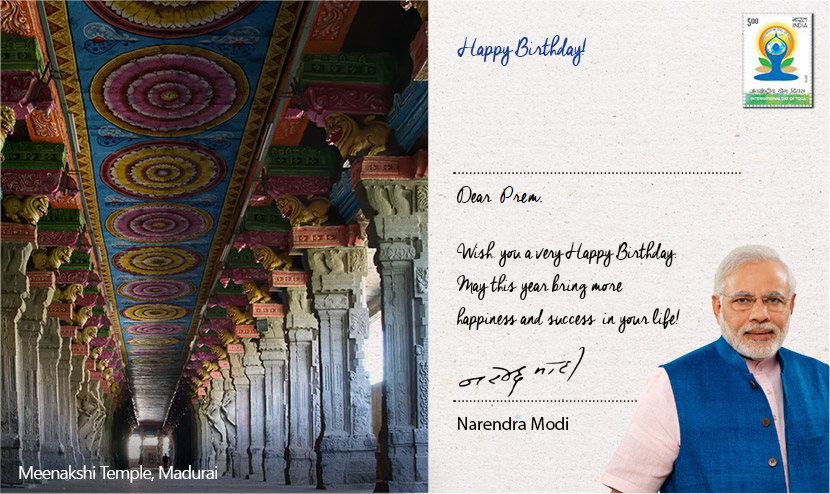 Happy Birthday!
5.00 भारत
INDIA
अंतर्राष्ट्रीय योग दिवस
INTERNATIONAL DAY OF YOGA
Dear Prem.
Wish you a very Happy Birthday.
May this year bring more
happiness and success in your life!
नरेन्द्र मोदी
Narendra Modi
Meenakshi Temple, Madurai